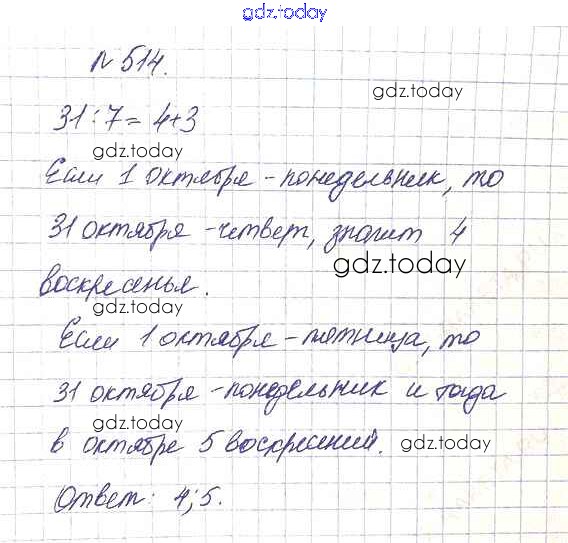 gdz.today
№514.
gdz.today
31:7=4+3
gdz.today
Если 1 октября - понедельник, то
31 октября - четверг, значит 4
gdz.today
воскресенья.
gdz.today
Если 1 октября - пятница, то
31 октября - понедельник и тогда
gdz.today
в октябре 5 воскресений.
gdz.today
Ответ: 4; 5.